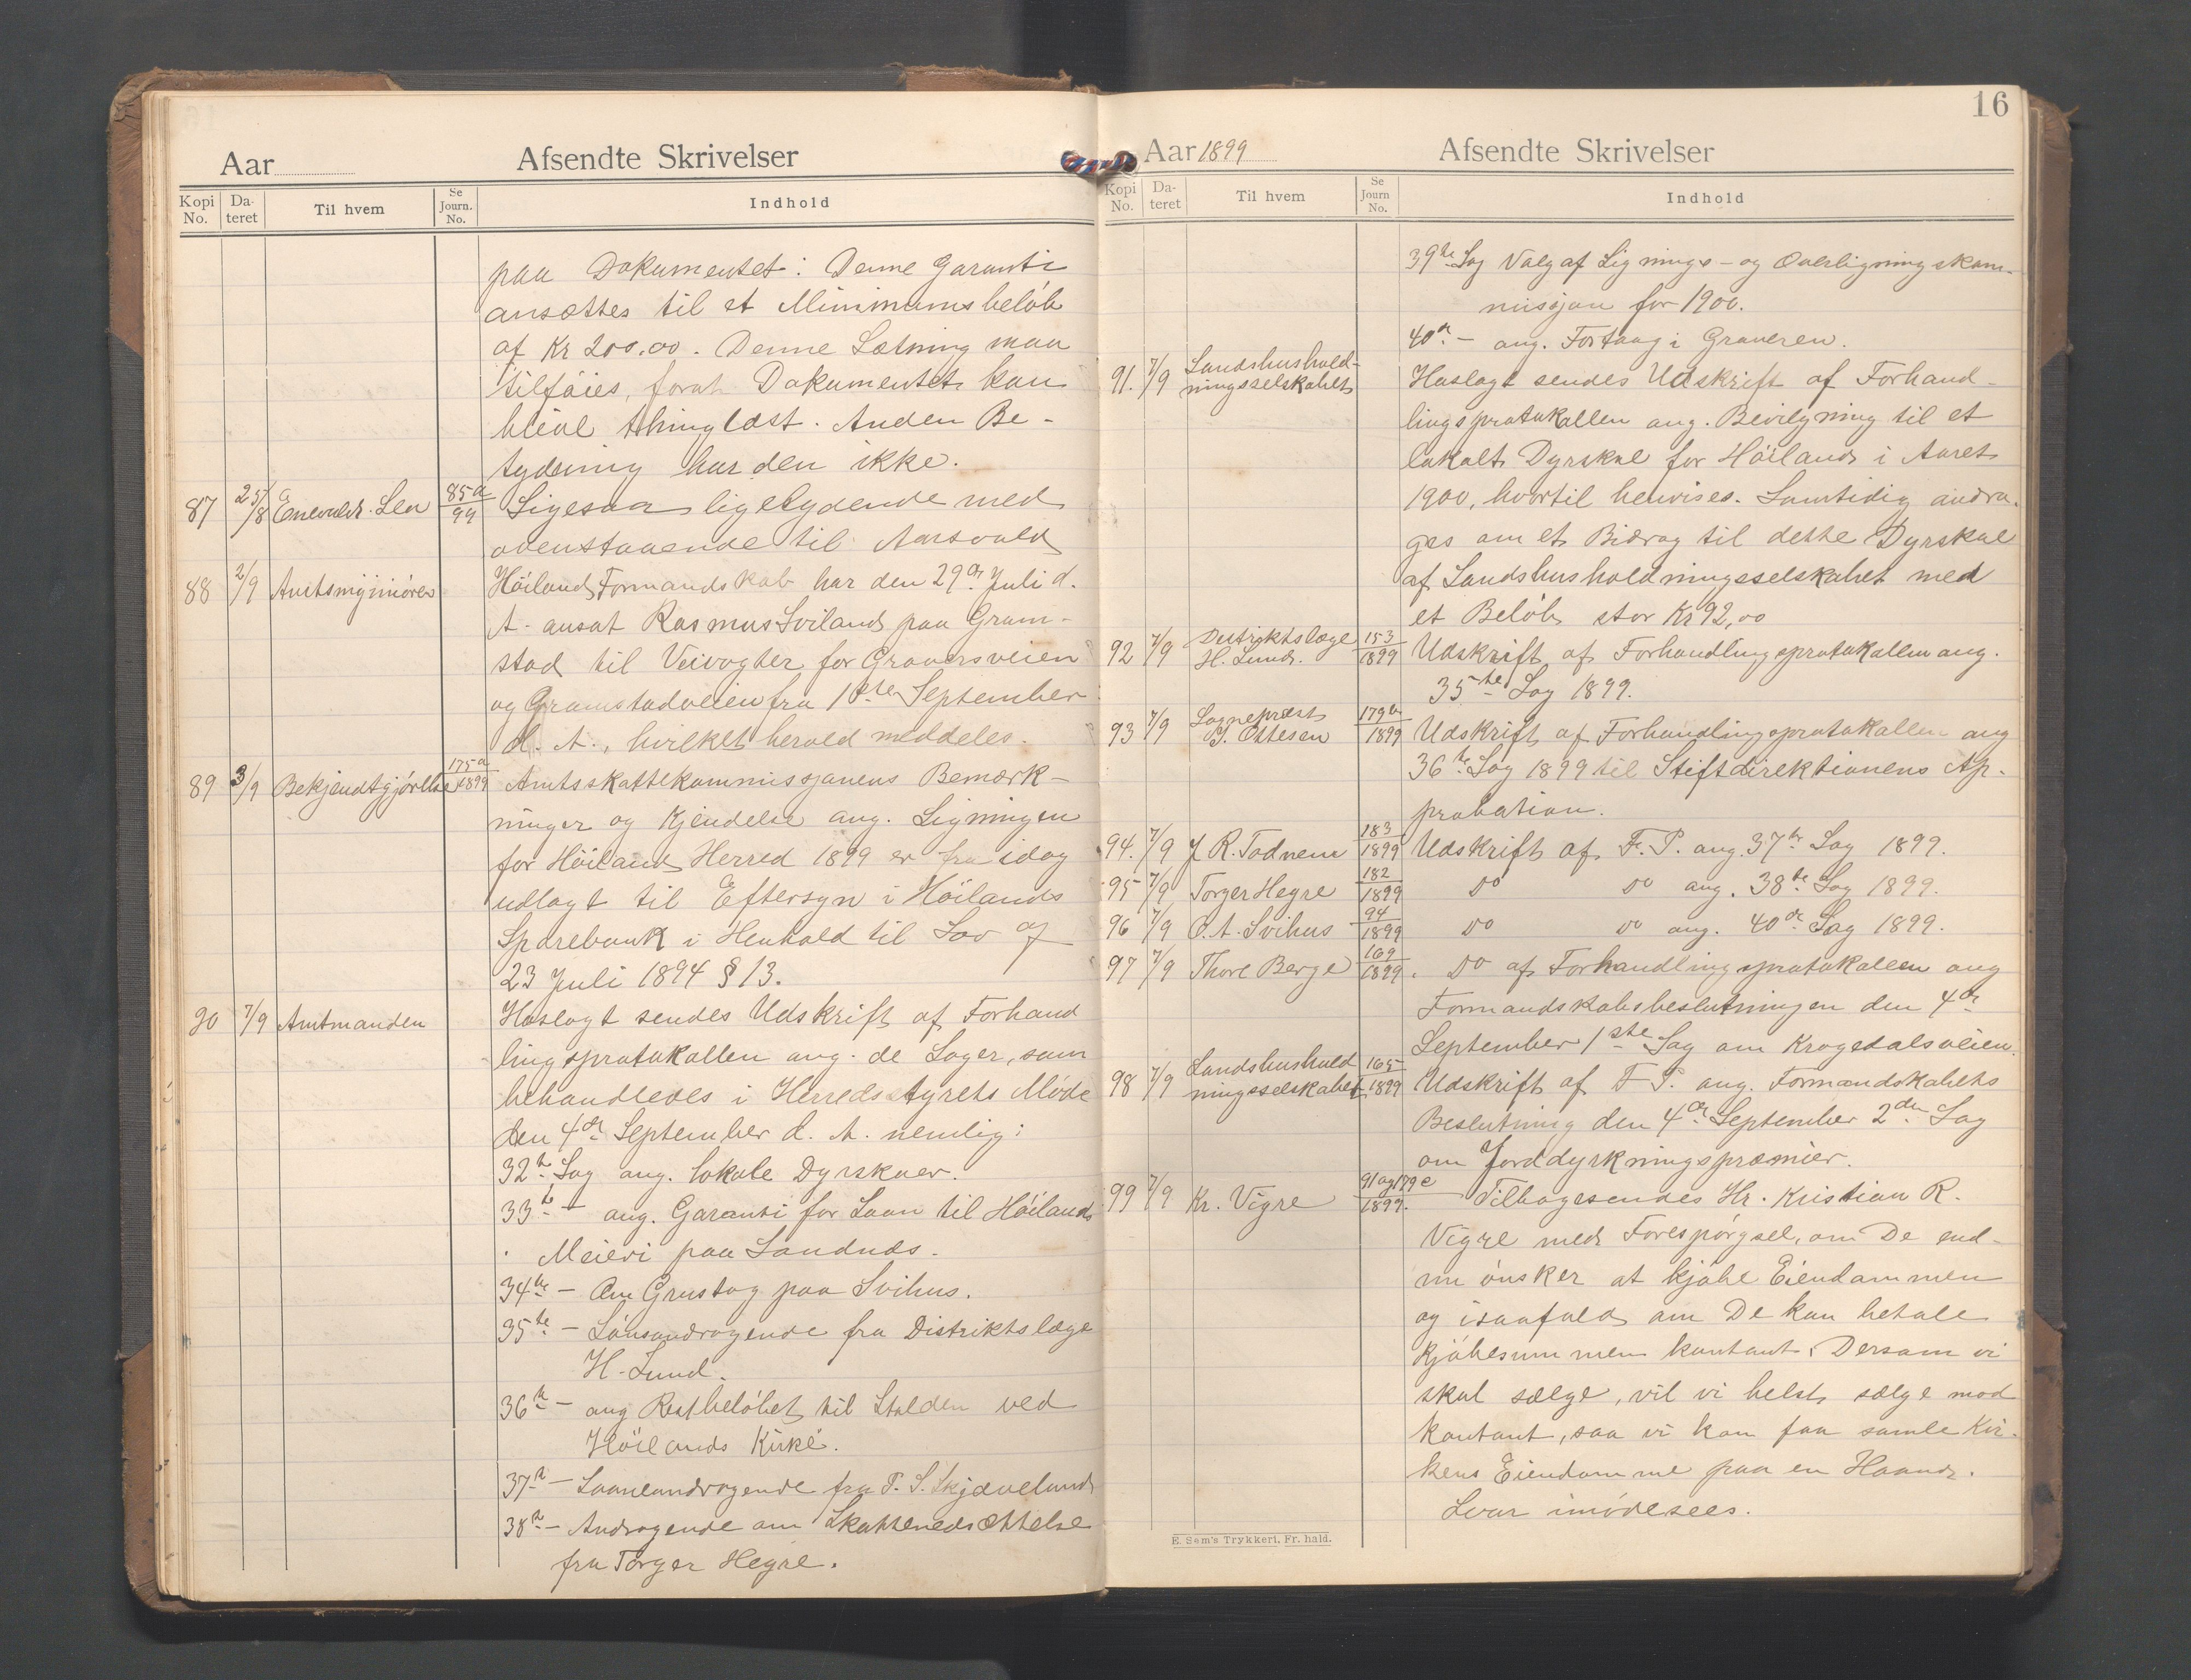 Aar
Afsendte Skrivelser
Kopi No.
Da-teret
Til hvem
Se Journ. No.
Indhold
paa Dokumentet: Denne Garanti
ansættes til et Minimumsbeløb
af Kr 200.00. Denne Sætning maa
tilføies, forat Dokumentet kan
blive thinglæst. Anden Be-
tydning har den ikke.
87 25/8 Enevald. Lea 85a/99 Ligesaa ligelydende med
ovenstaaende til Aarsvold
88 2/9 Amtsingjniøren Høiland Formandskab har den 29de Juli d.
A. ansat Rasmus Sviland paa Gram-
stad til Veivogter for Graversveien
og Gramstadveien fra 1ste September
d. A., hvilket herved meddeles.
89 3/9 Bekjendtgjørelse 175a/1899 Amtsskattekommissjonens Bemærk-
ninger og Kjendelse ang. Ligningen
for Høiland Herred 1899 er fra idag
udlagt til Eftersyn i Høilands
Sparebank i Henhold til Lov af
23 Juli 1894 § 13.
90 7/9 Amtmanden Hoslagt sendes Udskrift af Forhand
lingsprotokollen ang. de Sager, som
behandledes i Herredsstyrets Møde
den 4de September d. A. nemlig:
32te Sag ang. lokale Dyrskuer.
33te - ang. Garanti for Laan til Høilands
Meieri paa Sandnds.
34te - Om Grustag paa Svihus.
35te - Lønsandragende fra Distriktslæge
H. Lund.
36te - ang Restbeløbet til Stalden ved
Høilands Kirke.
37te - Laaneandragende fra T. S. Skjæveland
38te - Andragende om Skattenedsættelse
fra Torger Hegre.
16
Aar 1899
Afsendte Skrivelser
Kopi No.
Da-teret
Til hvem
Se Journ No.
Indhold
39te Sag Valg af Lignings- og Overligningskom-
missjon for 1900.
40de - ang. Fortaug i Graveren.
91. 7/9 Landshushold-ningsselskabet Hoslagt sendes Udskrift af Forhand-
lingsprotokollen ang. Bevilgning til et
lokalt Dyrskue for Høiland i Aaret
1900, hvortil henvises. Samtidig andra-
ges om et Bidrag til dette Dyrskue
af Landshusholdningsselskabet med
et Beløb stor Kr 92,00
92 7/9 Distriktslæge H. Lund. 153/1899 Udskrift af Forhandlingsprotokollen ang.
35te Sag 1899.
93 7/9 Sogneprest B. Ottesen 179a/1899 Udskrift af Forhandlingsprotokollen ang
36te Sag 1899 til Stiftdirektionens Ap-
probation.
94. 7/9 J R. Todnem 183/1899 Udskrift af F. P. ang. 37te Sag 1899.
95 7/9 Torger Hegre 182/1899 Do Do ang. 38te Sag 1899.
96 7/9 O. A. Svihus 94/1899 Do Do ang. 40de Sag 1899.
97 7/9 Thore Berge 169/1899. Do af Forhandlingsprotokollen ang
Formandskabsbeslutningen den 4de
September 1ste Sag om Krogedalsveien.
98 7/9 Landshushold ningsselskabet 165/1899 Udskrift af F P. ang. Formandskabets
Beslutning den 4de September 2den Sag
om Jorddyrkningspræmier.
99 7/9 Kr. Vigre 91 og 179c/1899. Tilbagesendes Hr. Kristian R.
Vigre med Forespørgsel, om De end-
nu ønsker at kjøbe Eiendommen
og isaafald om De kan betale
Kjøbesummen kontant. Dersom vi
skal sælge, vil vi helst sælge mod
kontant, saa vi kan faa samle Kir-
kens Eiendomme paa en Haand.
Svar imødesees.
E. Sem's Trykkeri, Fr. hald.